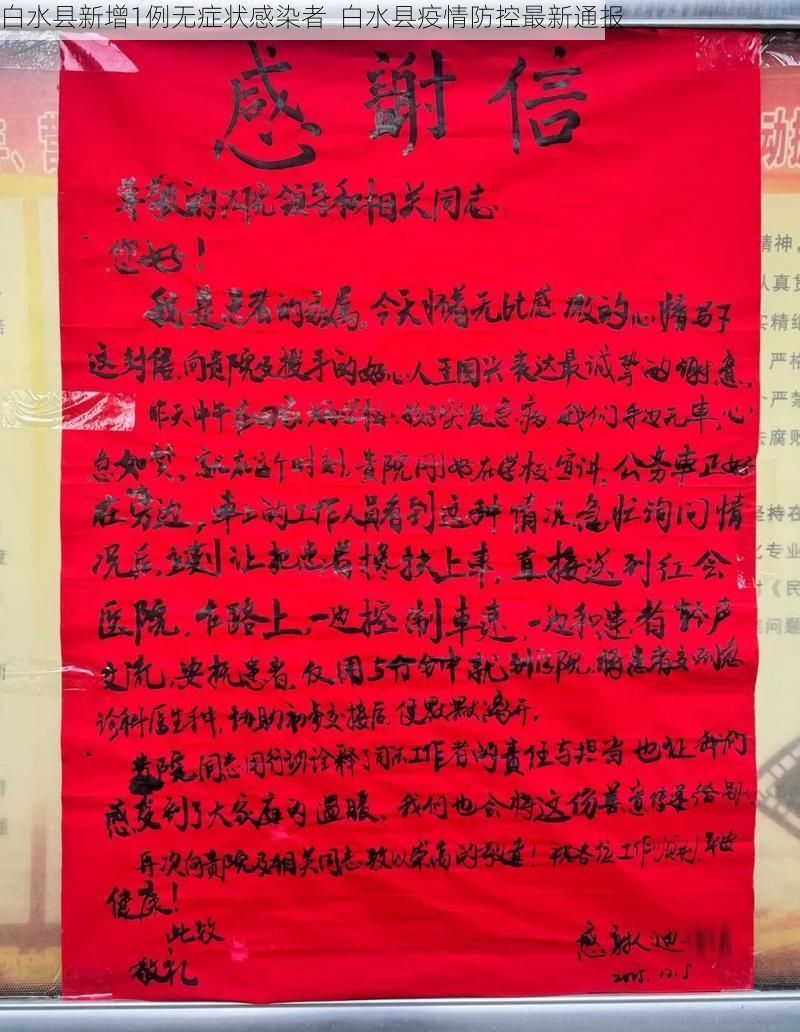 白水县新增1例无症状感染者 白水县疫情防控最新通报
感謝信
尊敬的法院领导和相关同志:
您好!
我是患者的家属,今天怀着无比感激的心情写下
这封信,向贵院及援手的好心人王国兴表达最诚挚的谢意。
昨天中午 孩子突发急病,我们手边无车,心
急如焚,就在这个时刻,贵院刚好在学校宣讲,公务车正好
在旁边,车上的工作人员看到这种情况急忙询问情
况后,立刻让把患者搀扶上车,直接送到红会
医院,在路上,一边控制车速,一边和患者轻声
交流,安抚患者,仅用5分钟就到医院,将患者交到急
诊科医生手中,协助初步交接后,便默默离开。
贵院同志用行动诠释了司法工作者的责任与担当也让我们
感受到了大家庭的温暖,我们也会将这份善意传递给别
再次向贵院及相关同志致以崇高的敬意!祝各位工作顺利,平安
健康!
此致
敬礼
感谢人 迪
2025.12.5
精神,
认真贯
实精细
严格
个严禁
去腐败
坚持在
化专业
对《民
问题